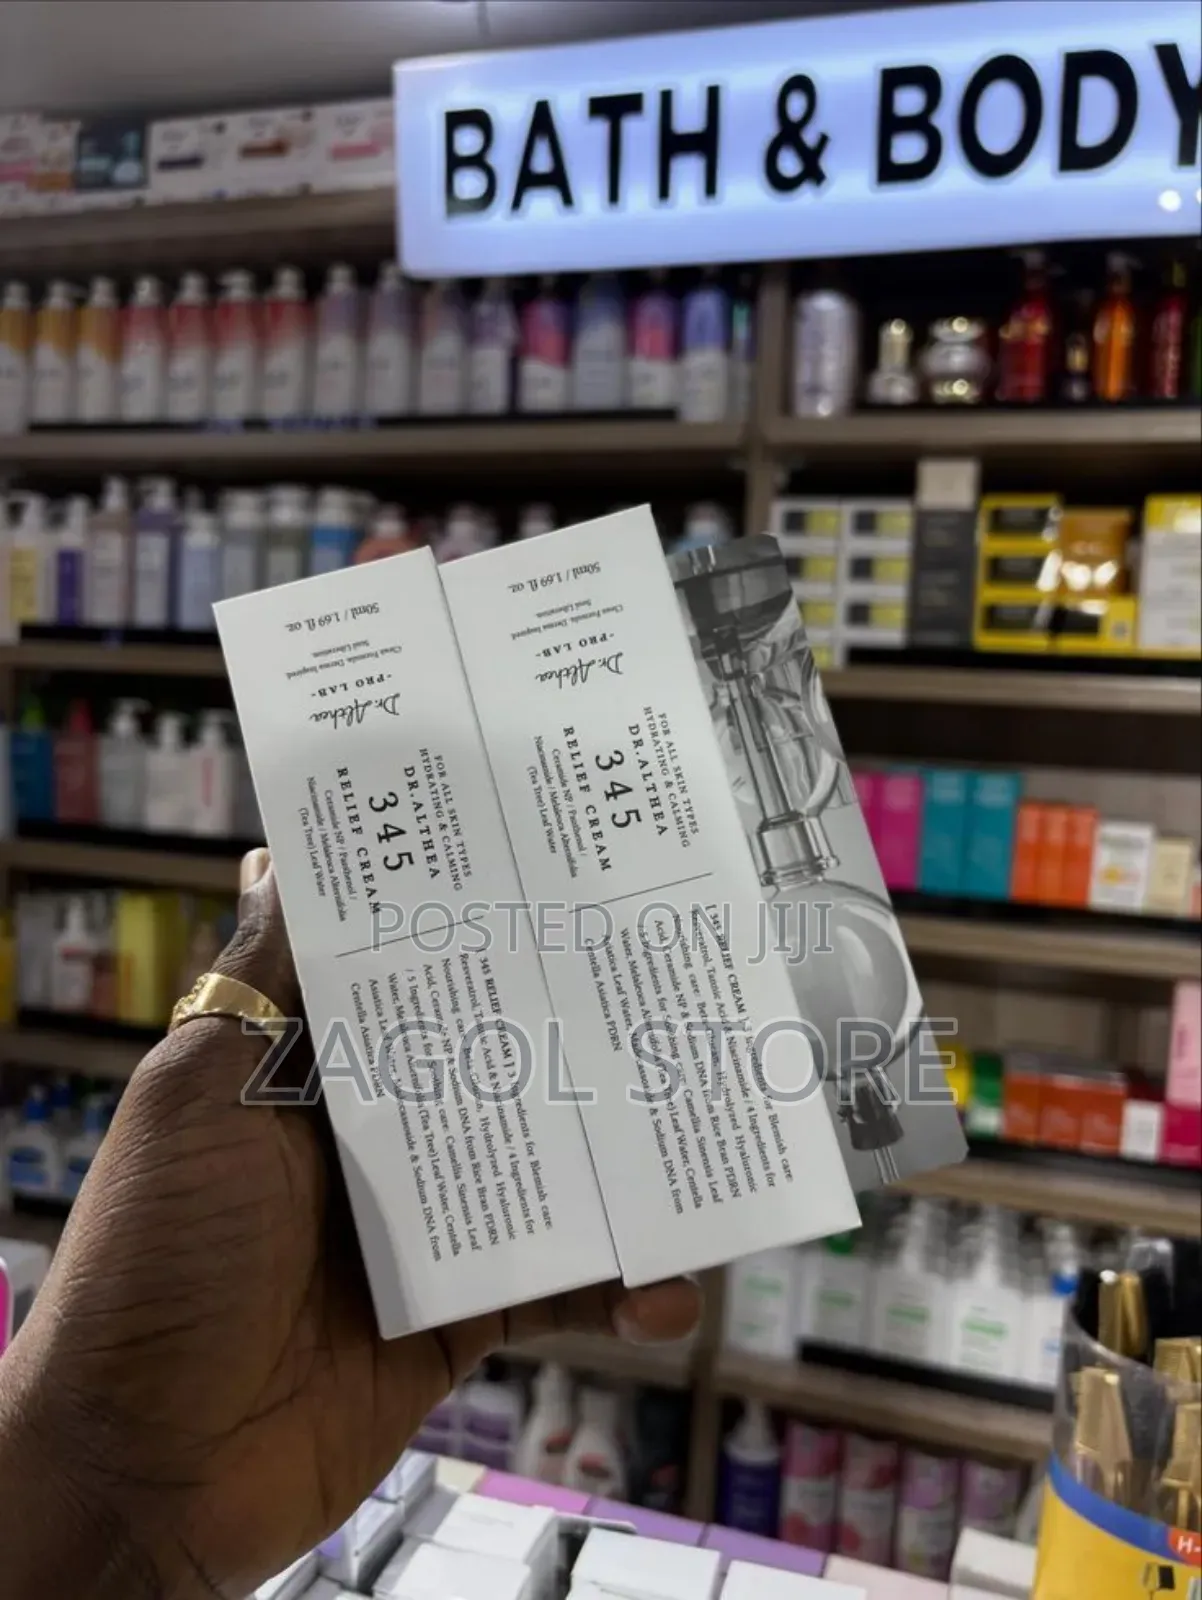 BATH & BODY
50ml / 1.69 fl. oz.
Clean Formula, Derma Inspired,
Soul Liberation.
-PRO LAB-
Dr.Althea
FOR ALL SKIN TYPES
HYDRATING & CALMING
DR.ALTHEA
345
RELIEF CREAM
Ceramide NP / Panthenol /
Niacinamide / Melaleuca Alternifolia
(Tea Tree) Leaf Water
345 RELIEF CREAM I 3 Ingredients for Blemish care:
Resveratrol, Tannic Acid & Niacinamide / 4 Ingredients for
Nourishing care: Beta-Glucan, Hydrolyzed Hyaluronic
Acid, Ceramide NP & Sodium DNA from Rice Bran PDRN
/ 5 Ingredients for Soothing care: Camellia Sinensis Leaf
Water, Melaleuca Alternifolia (Tea Tree) Leaf Water, Centella
Asiatica Leaf Water, Madecassoside & Sodium DNA from
Centella Asiatica PDRN
50ml / 1.69 fl. oz.
Clean Formula, Derma Inspired,
Soul Liberation.
-PRO LAB-
Dr.Althea
FOR ALL SKIN TYPES
HYDRATING & CALMING
DR.ALTHEA
345
RELIEF CREAM
Ceramide NP / Panthenol /
Niacinamide / Melaleuca Alternifolia
(Tea Tree) Leaf Water
345 RELIEF CREAM I 3 Ingredients for Blemish care:
Resveratrol, Tannic Acid & Niacinamide / 4 Ingredients for
Nourishing care: Beta-Glucan, Hydrolyzed Hyaluronic
Acid, Ceramide NP & Sodium DNA from Rice Bran PDRN
/ 5 Ingredients for Soothing care: Camellia Sinensis Leaf
Water, Melaleuca Alternifolia (Tea Tree) Leaf Water, Centella
Asiatica Leaf Water, Madecassoside & Sodium DNA from
Centella Asiatica PDRN
POSTED ON JIJI
ZAGOL STORE